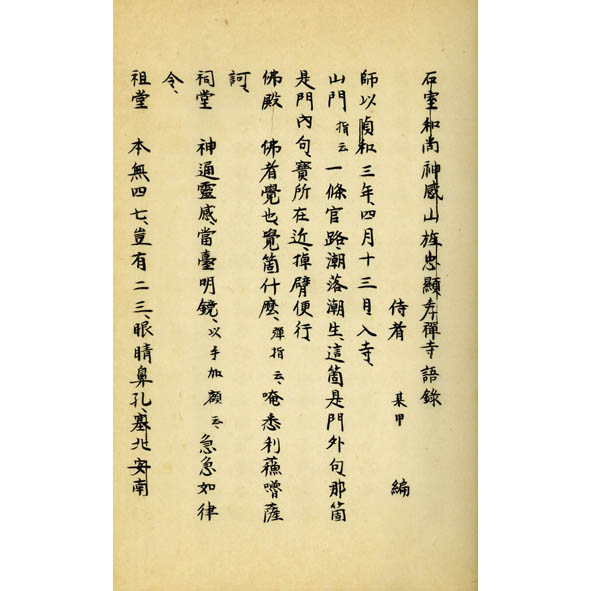 石室和尚神感山旌忠顯孝禪寺語錄
侍者 某甲 編
師以貞和三年、四月十三日入寺、
山門 指云 一條官路、潮落潮生、這箇是門外句、那箇
是門內句、寶所在近、掉臂便行
佛殿 佛者覺也、覺箇什麼、彈指云、唵悉利蘓嚕薩
訶、
祠堂 神通靈感、當臺明鏡、以手加額云、急急如律
令、
祖堂 本無四七、豈有二三、眼睛鼻孔、塞北安南